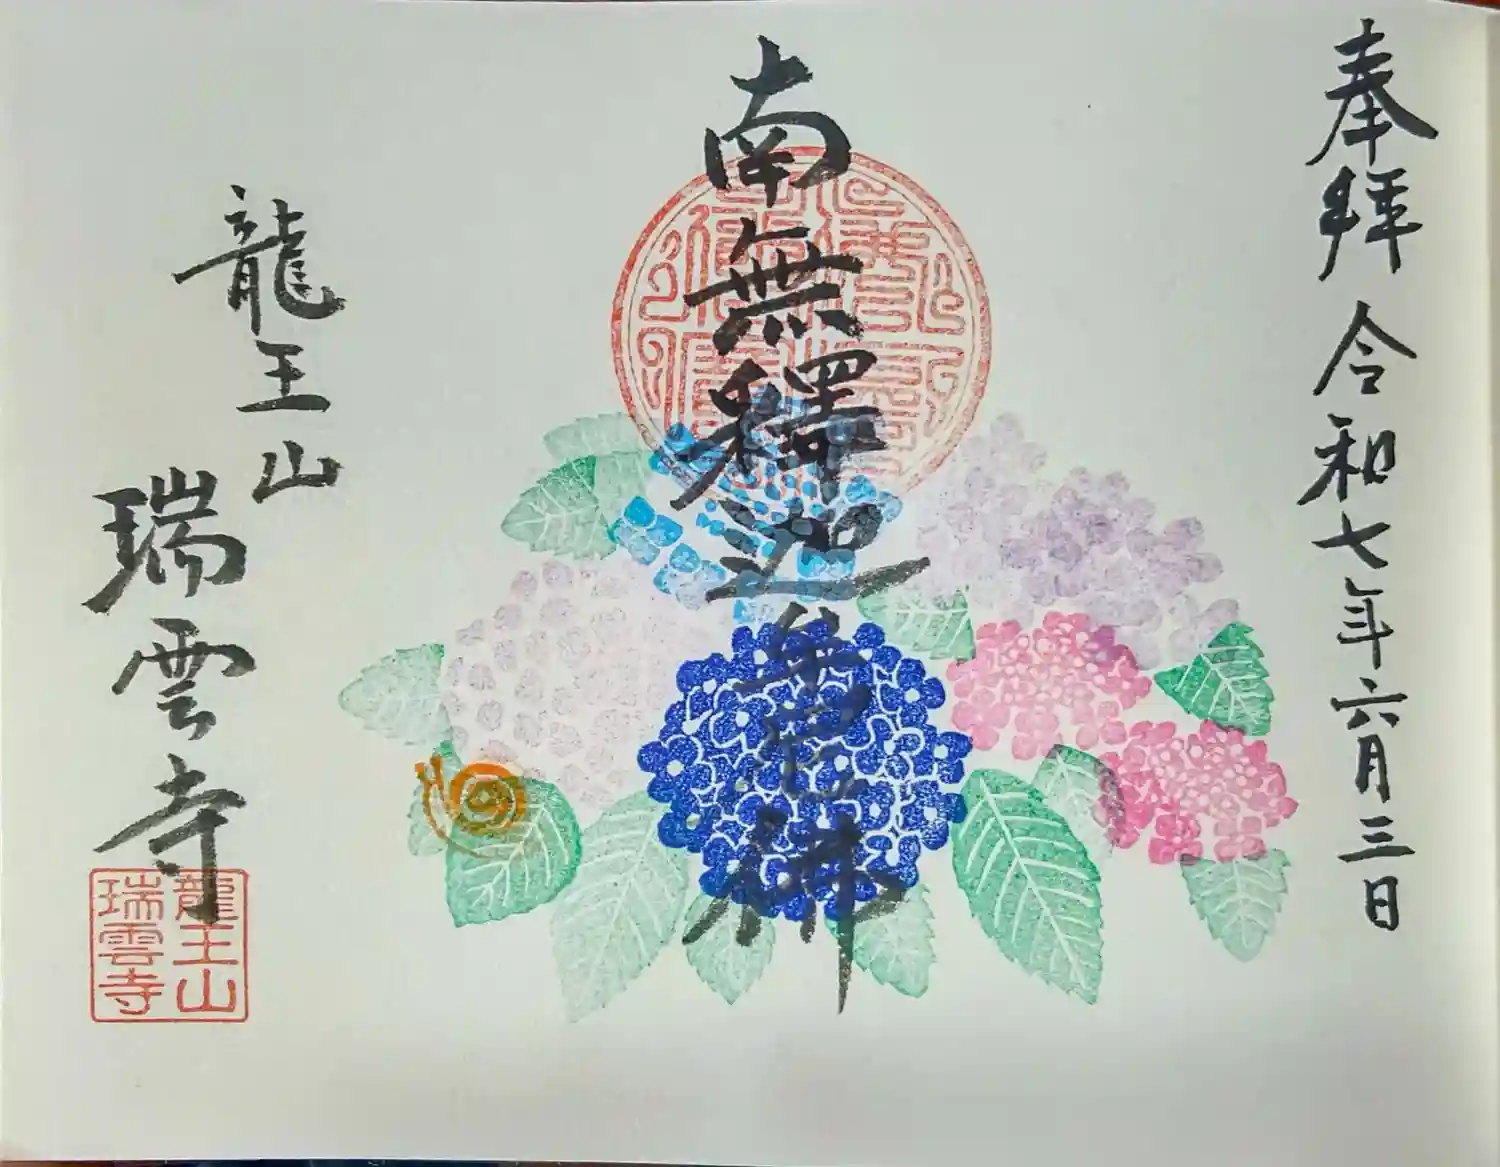 奉拜 令和七年六月三日
南無釋迦牟尼佛
龍王山
瑞雲寺
龍王山
瑞雲寺